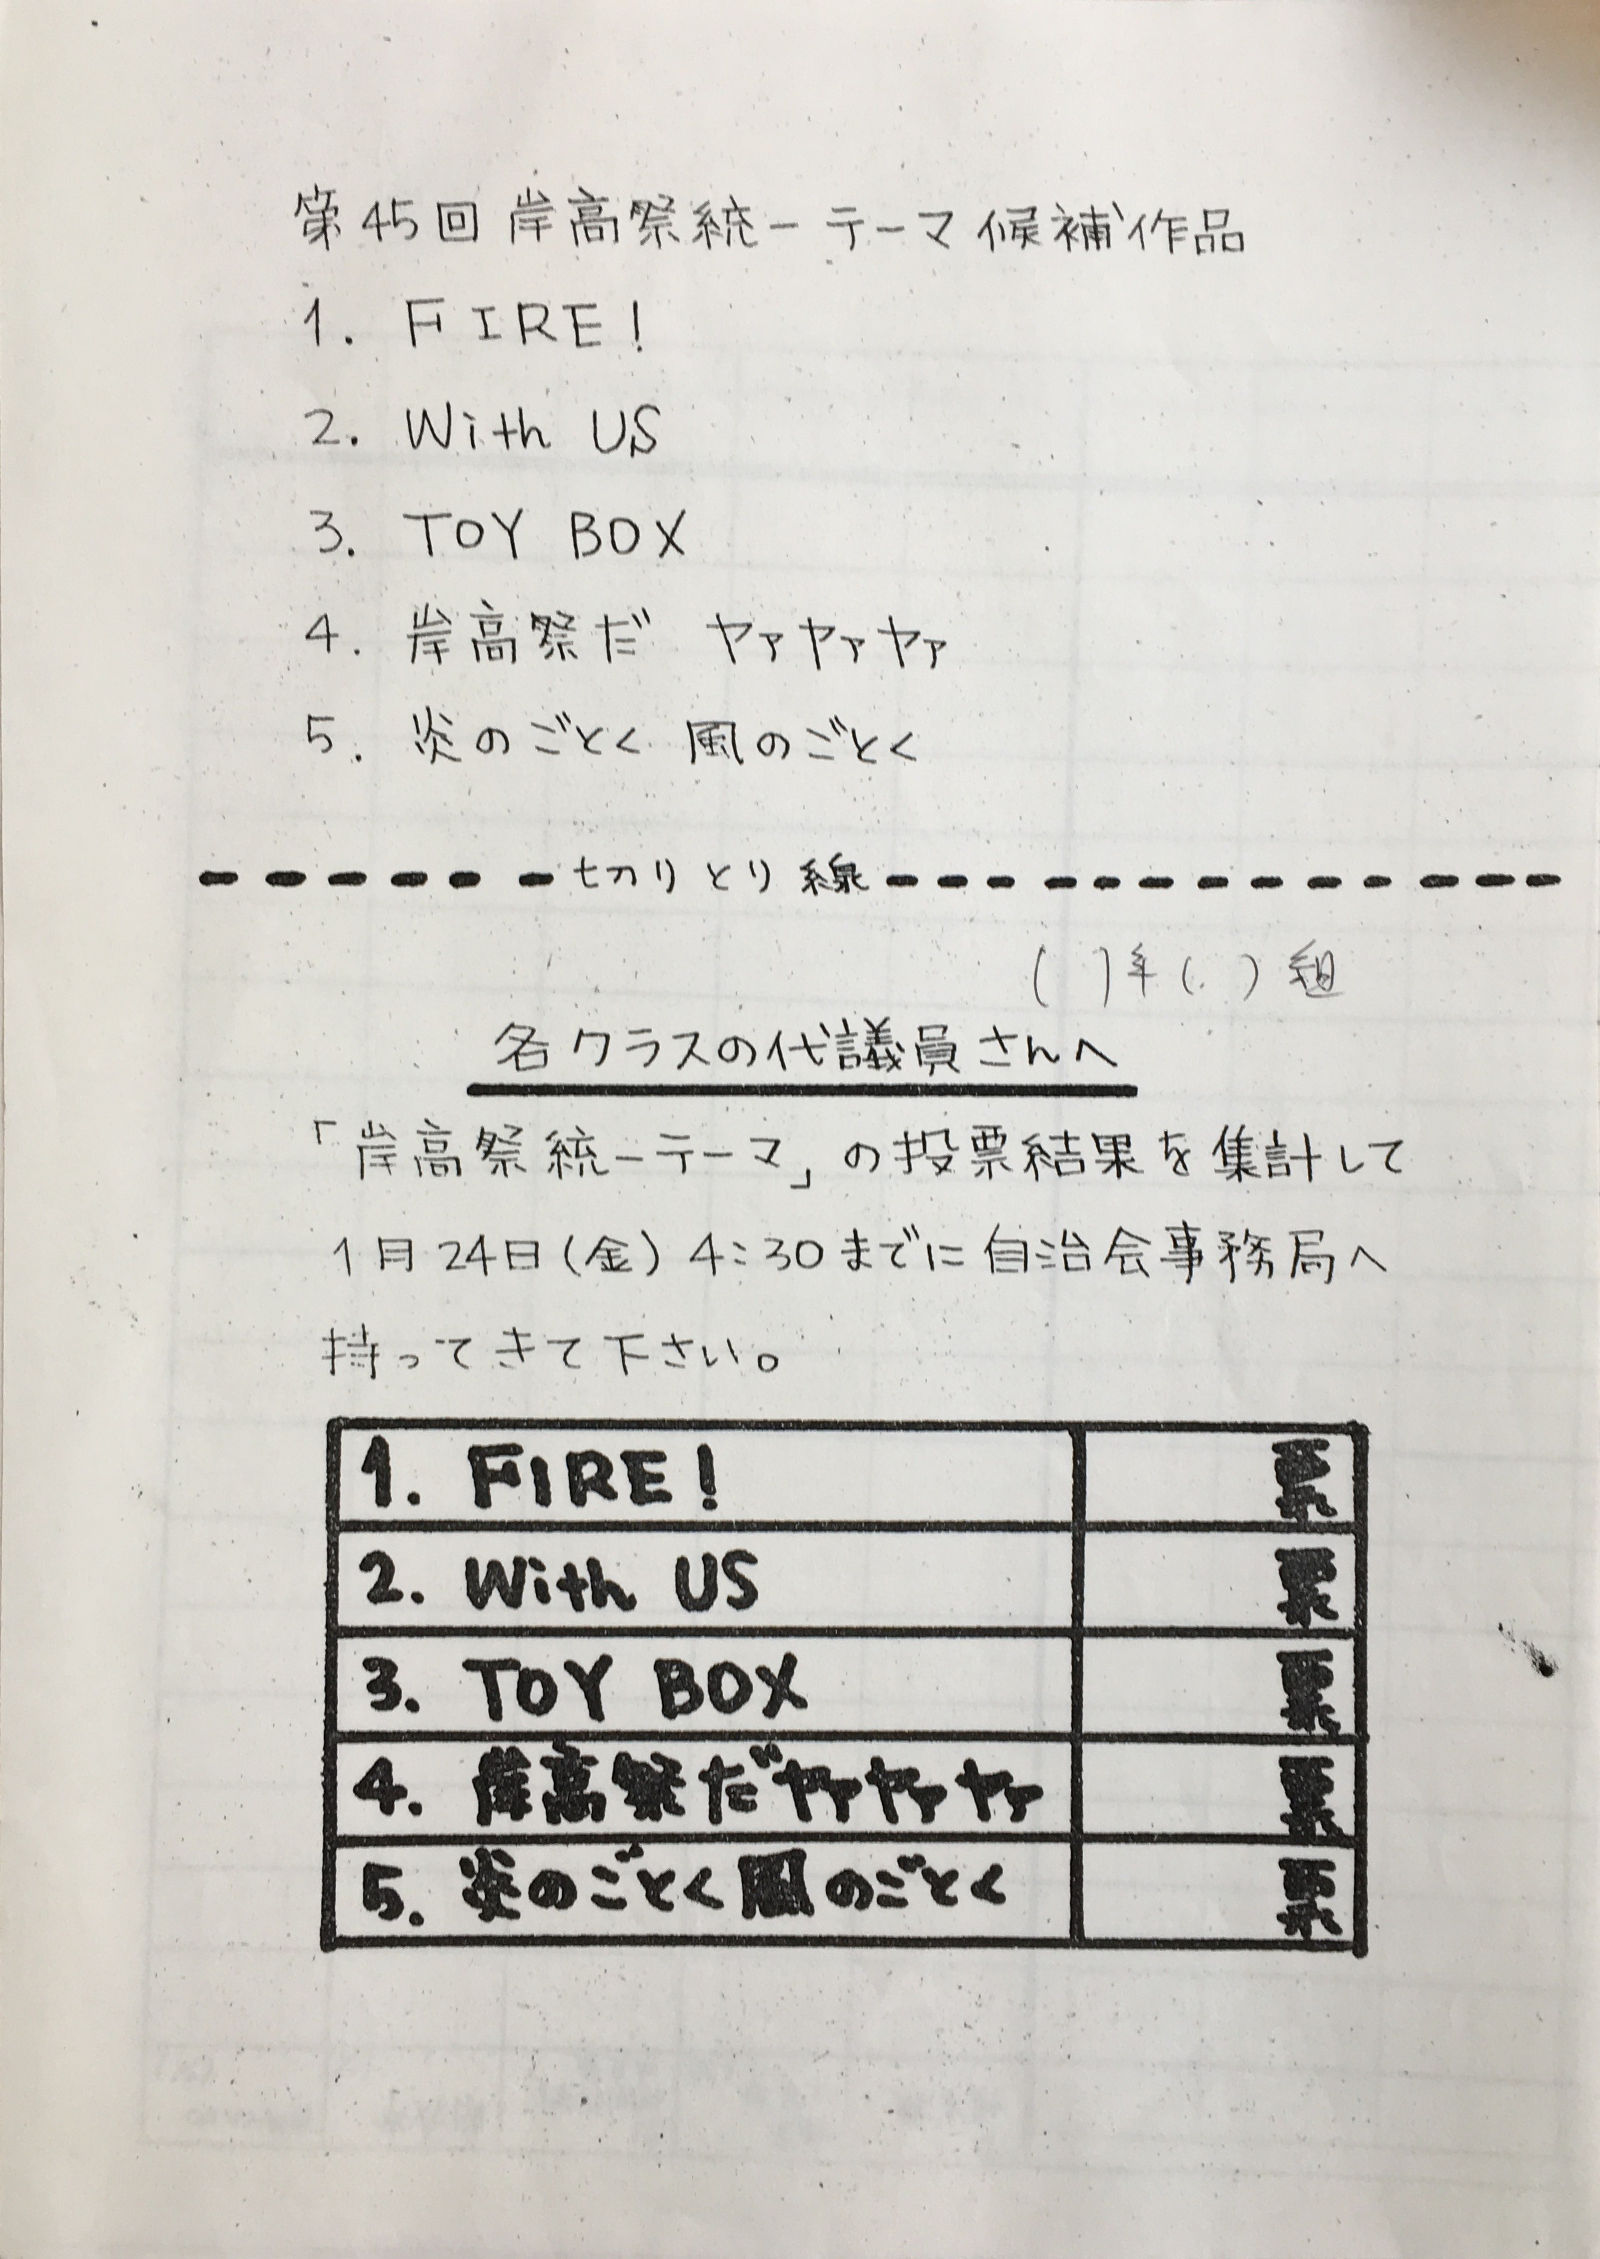 第45回 岸高祭統一テーマ候補作品
1. FIRE!
2. With US
3. TOY BOX
4. 岸高祭だ ヤァヤァヤァ
5. 炎のごとく 風のごとく
切りとり線
( )年( )組
各クラスの代議員さんへ
「岸高祭統一テーマ」の投票結果を集計して
1月24日(金) 4:30までに自治会事務局へ
持ってきて下さい。
1. FIRE! 票
2. With US 票
3. TOY BOX 票
4. 岸高祭だヤァヤァヤァ 票
5. 炎のごとく風のごとく 票